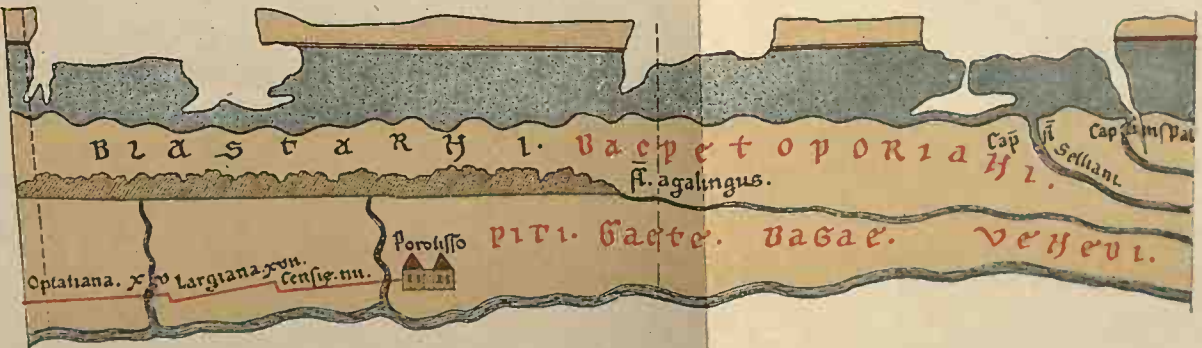 BlastaRNI. DacpetopoRiaNI.
Cap̄ fl̄ Selliani.
Cap
fl̄. agalingus.
PITI. Gaete. DaGae. VeNeDI.
Porolisso
Optatiana. XV
Largiana. XVII.
Cersie. IIII.